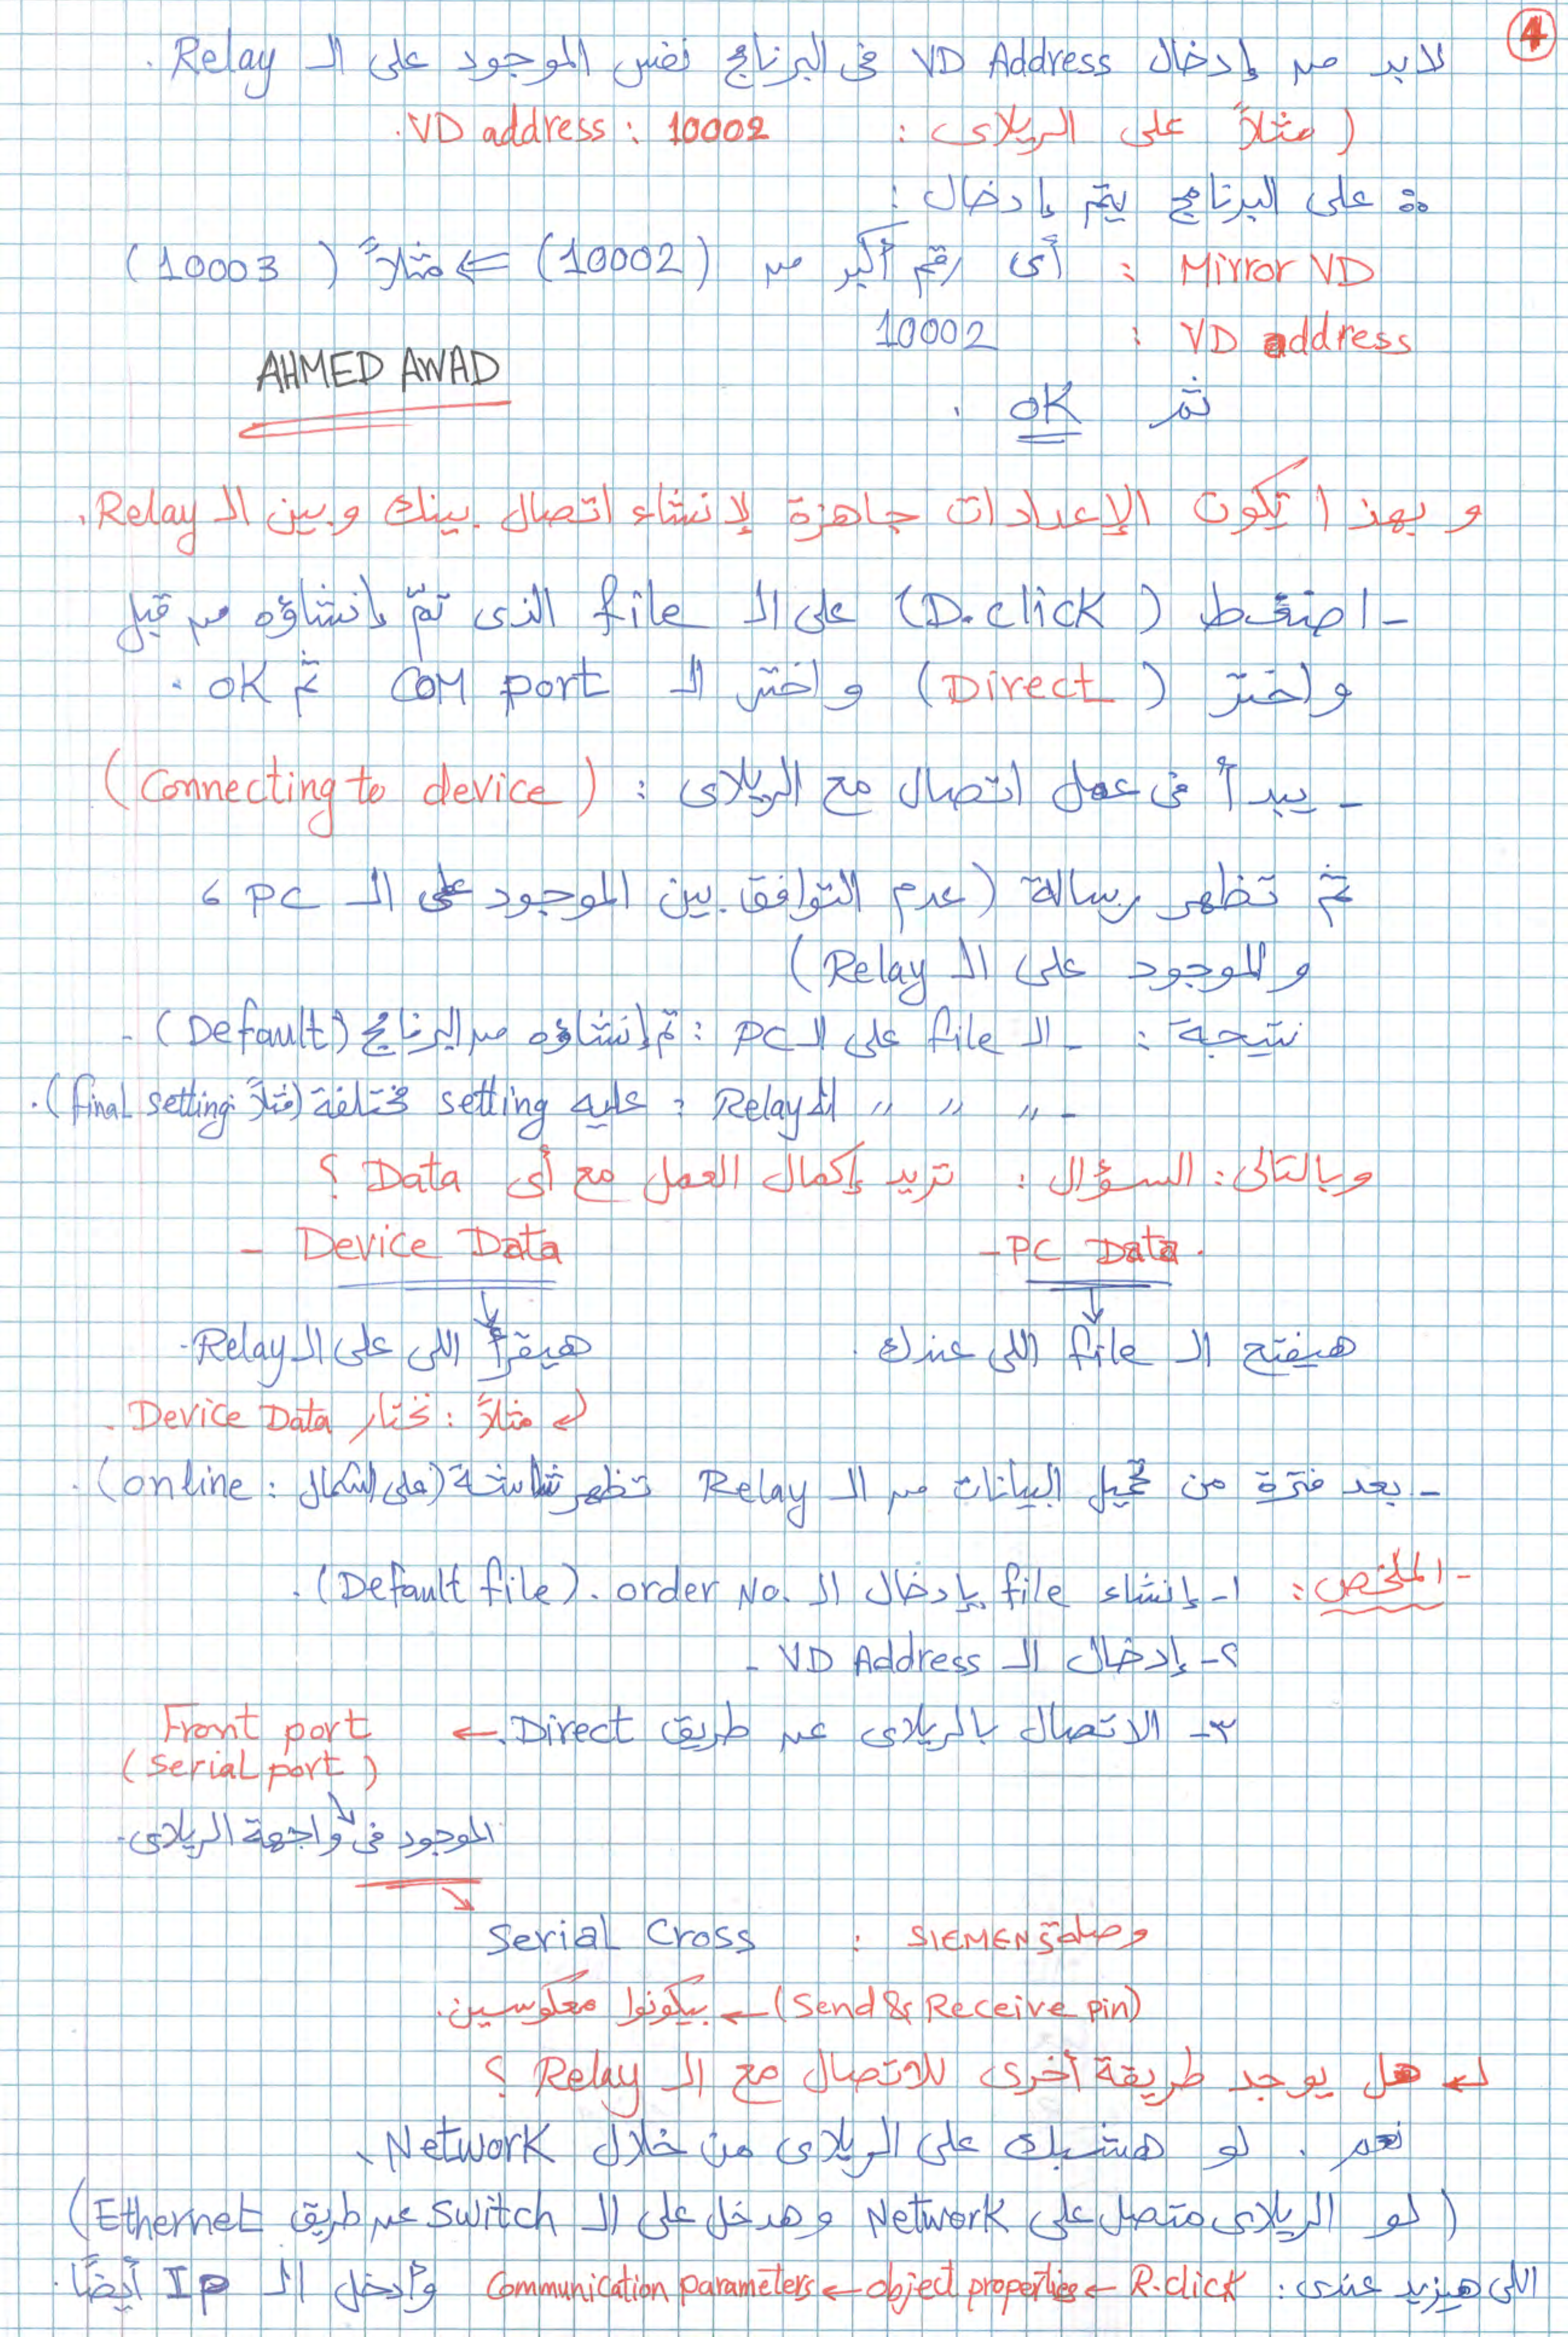 4
لابد من إدخال VD Address فى البرنامج نفس الموجود على الـ Relay .
( مثلاً على الريلاى : VD address : 10002.
∴ على البرنامج يتم إدخال :
Mirror VD : أى رقم أكبر من (10002) ⇐ مثلاً (10003)
VD address : 10002
AHMED AWAD
ثم OK .
و بهذا تكون الإعدادات جاهزة لإنشاء اتصال بينك وبين الـ Relay.
- اضغط (D.click) على الـ file الذى تم إنشاؤه من قبل
واختر (Direct) واختر الـ COM port ثم OK .
- يبدأ فى عمل اتصال مع الريلاى : (Connecting to device)
ثم تظهر رسالة (عدم التوافق بين الموجود على الـ PC ،
والموجود على الـ Relay)
نتيجة : - الـ file على الـ PC : تم إنشاؤه من البرنامج (Default) .
- " " " الـ Relay : عليه setting مختلفة (مثلاً: final setting).
وبالتالى : السؤال : تريد إكمال العمل مع أى Data ؟
- PC Data.
- Device Data
هيفتح الـ file اللى عندك .
هيقرأ اللى على الـ Relay.
↵ مثلاً : نختار Device Data .
- بعد فترة من تحميل البيانات من الـ Relay تظهر شاشة (على الشمال : online) .
- الملخص : ١- إنشاء file بإدخال الـ order No. (Default file) .
٢- إدخال الـ VD Address .
٣- الاتصال بالريلاى عن طريق Direct. ← Front port
(Serial port)
الموجود فى واجهة الريلاى.
وصلة SIEMENS : Serial Cross
(Send & Receive pin) ← بيكونوا معكوسين.
↵ هل يوجد طريقة أخرى للاتصال مع الـ Relay ؟
نعم . لو هشبك على الريلاى من خلال Network.
( لو الريلاى متصل على Network وهدخل على الـ Switch عن طريق Ethernet)
اللى هيزيد عندى : R.click ← object properties ← Communication parameters وأدخل الـ IP أيضًا.